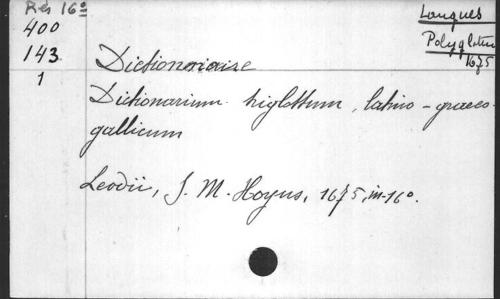 Rés 16°
400
143
1
Langues
Polyglottes
1675
Dictionnaire
Dictionarium triglottum, latino-graeco
gallicum
Leodii, J. M. Hoyus, 1675, in-16°.